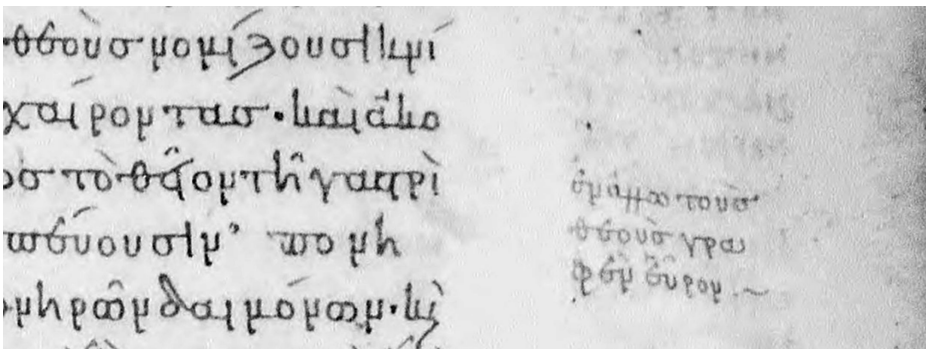 θεοὺσ νομίζουσι κνί
χαίροντασ· καὶ ἀκο
οσ τὸ θεῖον τῆ γαστρὶ
πεύουσιν,
νηρῶν δαιμόνων·
ἐν ἄλλω τοὺσ
θεοὺσ γρα
φὲν εὗρον